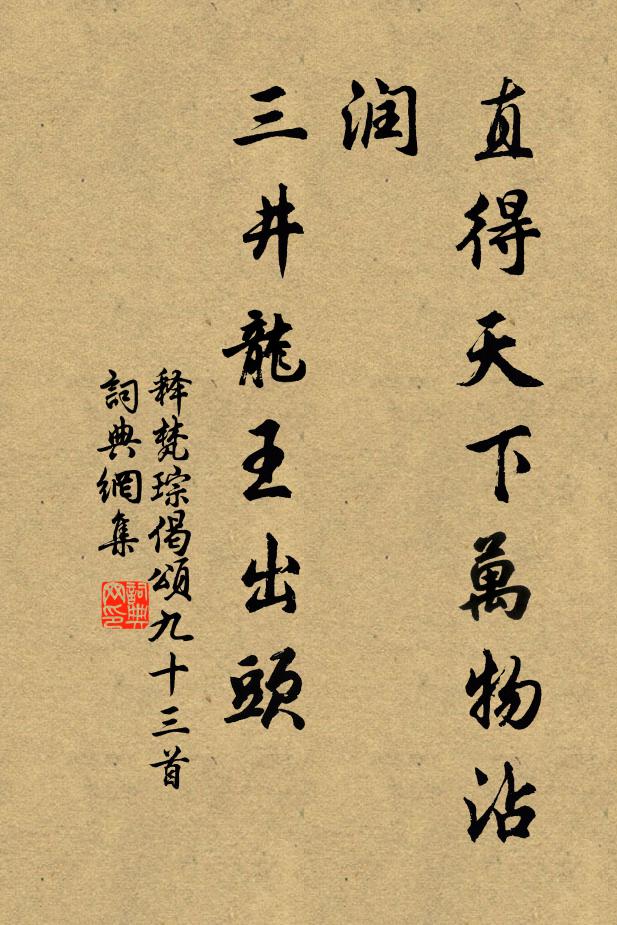 直得天下萬物沾
润
三井龍王出頭
释梵琮偈頌九十三首
詞典網集
詞典網印